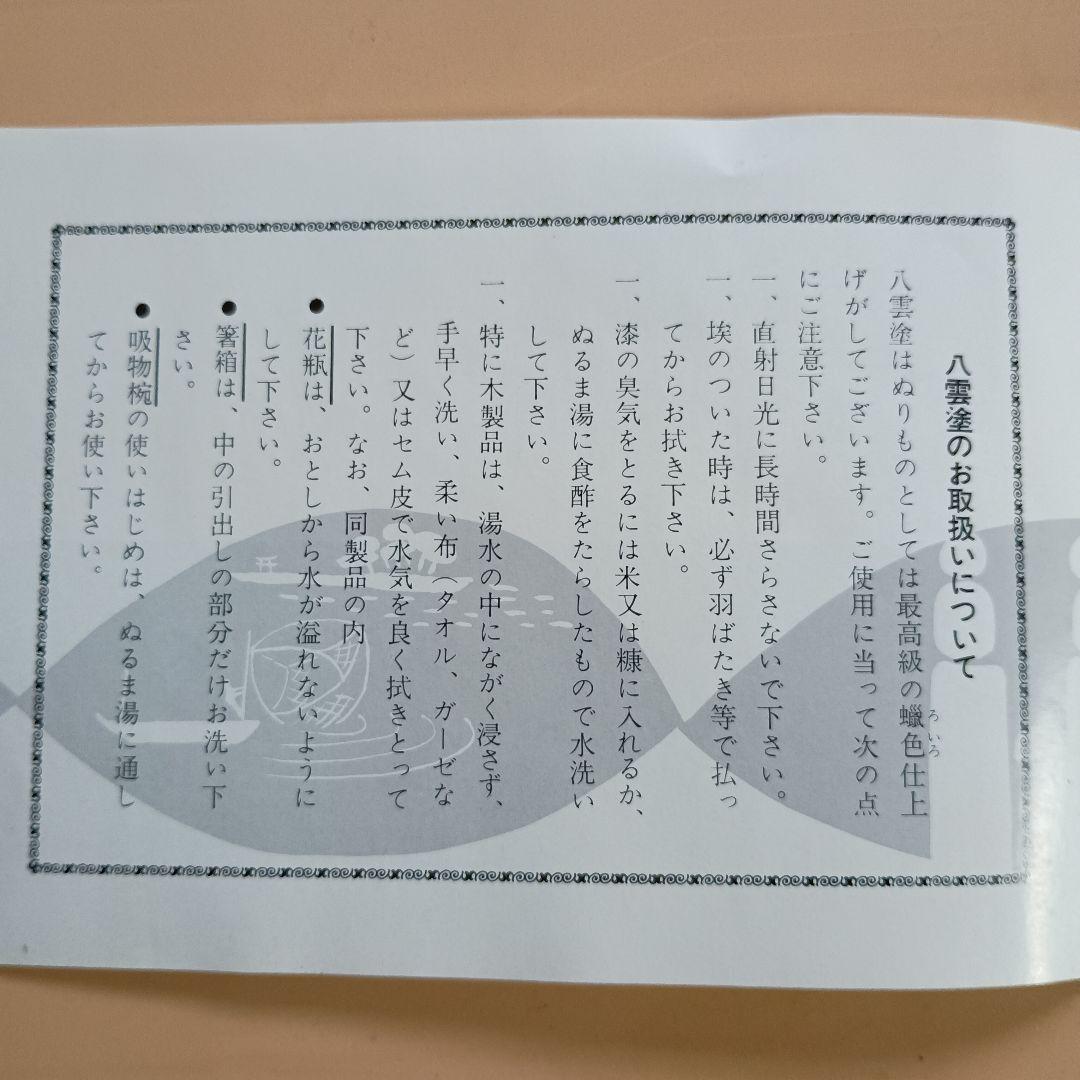 八雲塗のお取扱いについて
八雲塗はぬりものとしては最高級の蠟色仕上
ろいろ
げがしてございます。ご使用に当って次の点
にご注意下さい。
一、直射日光に長時間さらさないで下さい。
一、埃のついた時は、必ず羽ばたき等で払っ
てからお拭き下さい。
一、漆の臭気をとるには米又は糠に入れるか、
ぬるま湯に食酢をたらしたもので水洗い
して下さい。
一、特に木製品は、湯水の中にながく浸さず、
手早く洗い、柔い布(タオル、ガーゼな
ど)又はセム皮で水気を良く拭きとって
下さい。なお、同製品の内
●花瓶は、おとしから水が溢れないように
して下さい。
●箸箱は、中の引出しの部分だけお洗い下
さい。
●吸物椀の使いはじめは、ぬるま湯に通し
てからお使い下さい。